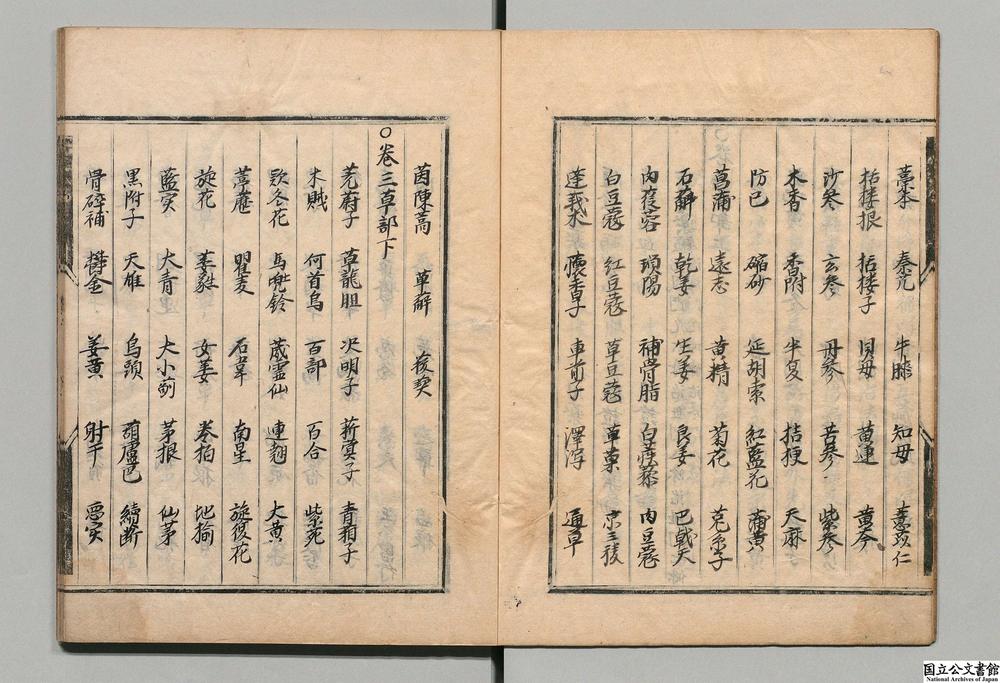 藁本 秦艽 牛膝 知母 薏苡仁
括楼根 括楼子 貝母 黄連 黄芩
沙参 玄参 丹参 苦参 紫参
木香 香附 半夏 桔梗 天麻
防已 縮砂 延胡索 紅藍花 蒲黄
菖蒲 遠志 黄精 菊花 菟糸子
石斛 乾姜 生姜 良姜 巴戟天
肉蓯蓉 瑣陽 補骨脂 白蒺蔾 肉豆蔻
白豆蔻 紅豆蔻 草豆蔻 草菓 京三稜
蓬莪朮 懐香草 車前子 澤瀉 通草
茵陳蒿 萆薢 後葜
○巻三草部下
茺蔚子 草龍胆 决明子 菥蓂子 青葙子
木賊 何首烏 百部 百合 紫菀
款冬花 馬兜鈴 葳霊仙 連翹 大黄
葶藶 瞿麦 石韋 南星 旋復花
旋花 姜黏 女姜 巻栢 地楡
藍実 大青 大小薊 茅根 仙茅
黒附子 天雄 烏頭 葫蘆巴 續断
骨碎補 欝金 姜黄 射干 悪実
国立公文書館
National Archives of Japan